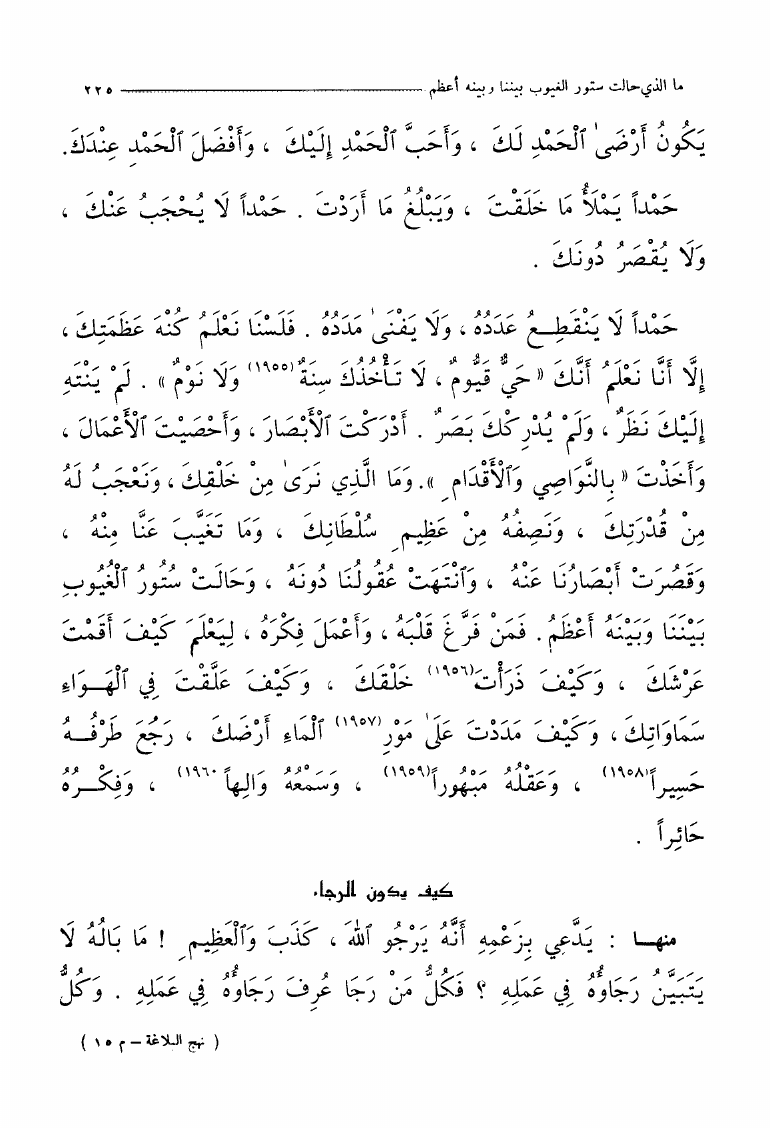 ما الذي حالت ستور الغيوب بيننا وبينه أعظم ٢٢٥
يَكُونُ أَرْضَىٰ ٱلْحَمْدِ لَكَ ، وَأَحَبَّ ٱلْحَمْدِ إِلَيْكَ ، وَأَفْضَلَ ٱلْحَمْدِ عِنْدَكَ.
حَمْداً يَمْلَأُ مَا خَلَقْتَ ، وَيَبْلُغُ مَا أَرَدْتَ . حَمْداً لَا يُحْجَبُ عَنْكَ ،
وَلَا يُقْصَرُ دُونَكَ .
حَمْداً لَا يَنْقَطِـعُ عَدَدُهُ ، وَلَا يَفْنَىٰ مَدَدُهُ . فَلَسْنَا نَعْلَمُ كُنْهَ عَظَمَتِكَ ،
إِلَّا أَنَّا نَعْلَمُ أَنَّكَ « حَيٌّ قَيُّومٌ ، لَا تَأْخُذُكَ سِنَةٌ (١٩٥٥) وَلَا نَوْمٌ » . لَمْ يَنْتَهِ
إِلَيْكَ نَظَرٌ ، وَلَمْ يُدْرِكْكَ بَصَرٌ . أَدْرَكْتَ ٱلْأَبْصَارَ ، وَأَحْصَيْتَ ٱلْأَعْمَالَ ،
وَأَخَذْتَ « بِالنَّوَاصِي وَٱلْأَقْدَامِ ». وَمَا الَّذِي نَرَىٰ مِنْ خَلْقِكَ ، وَنَعْجَبُ لَهُ
مِنْ قُدْرَتِكَ ، وَنَصِفُهُ مِنْ عَظِيمِ سُلْطَانِكَ ، وَمَا تَغَيَّبَ عَنَّا مِنْهُ ،
وَقَصُرَتْ أَبْصَارُنَا عَنْهُ ، وَٱنْتَهَتْ عُقُولُنَا دُونَهُ ، وَحَالَتْ سُتُورُ ٱلْغُيُوبِ
بَيْنَنَا وَبَيْنَهُ أَعْظَمُ . فَمَنْ فَرَّغَ قَلْبَهُ ، وَأَعْمَلَ فِكْرَهُ ، لِيَعْلَمَ كَيْفَ أَقَمْتَ
عَرْشَكَ ، وَكَيْفَ ذَرَأْتَ (١٩٥٦) خَلْقَكَ ، وَكَيْفَ عَلَّقْتَ فِي ٱلْهَـوَاءِ
سَمَاوَاتِكَ ، وَكَيْفَ مَدَدْتَ عَلَىٰ مَوْرِ (١٩٥٧) ٱلْمَاءِ أَرْضَكَ ، رَجَعَ طَرْفُـهُ
حَسِيراً (١٩٥٨) ، وَعَقْلُهُ مَبْهُوراً (١٩٥٩) ، وَسَمْعُهُ وَالِهاً (١٩٦٠) ، وَفِكْـرُهُ
حَائِراً .
كيف يكون الرجاء
منهـا : يَدَّعِي بِزَعْمِهِ أَنَّهُ يَرْجُو ٱللهَ ، كَذَبَ وَٱلْعَظِيمِ ! مَا بَالُهُ لَا
يَتَبَيَّنُ رَجَاؤُهُ فِي عَمَلِهِ ؟ فَكُلُّ مَنْ رَجَا عُرِفَ رَجَاؤُهُ فِي عَمَلِهِ . وَكُلُّ
( نهج البلاغة – م ١٥ )